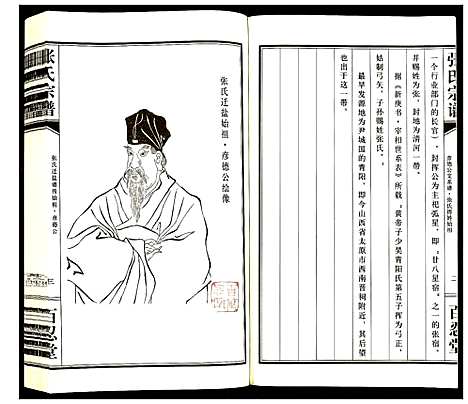 张氏宗谱
二
百忍堂
一个行业部门的长官），封挥公为主祀弧星，即『廿八星宿，之一的张宿，
并赐姓为张，封地为清河一带。
据《新唐书·宰相世系表》所载：“黄帝子少昊青阳氏第五子挥为弓正，
姑制弓矢，子孙赐姓张氏。”
最早发源地为尹城国的青阳，即今山西省太原市西南晋祠附近，其后望
也出于这一带。
张氏迁盐始祖·彦德公绘像
张氏宗谱
张氏迁盐谱传始祖·彦德公
三
百忍堂